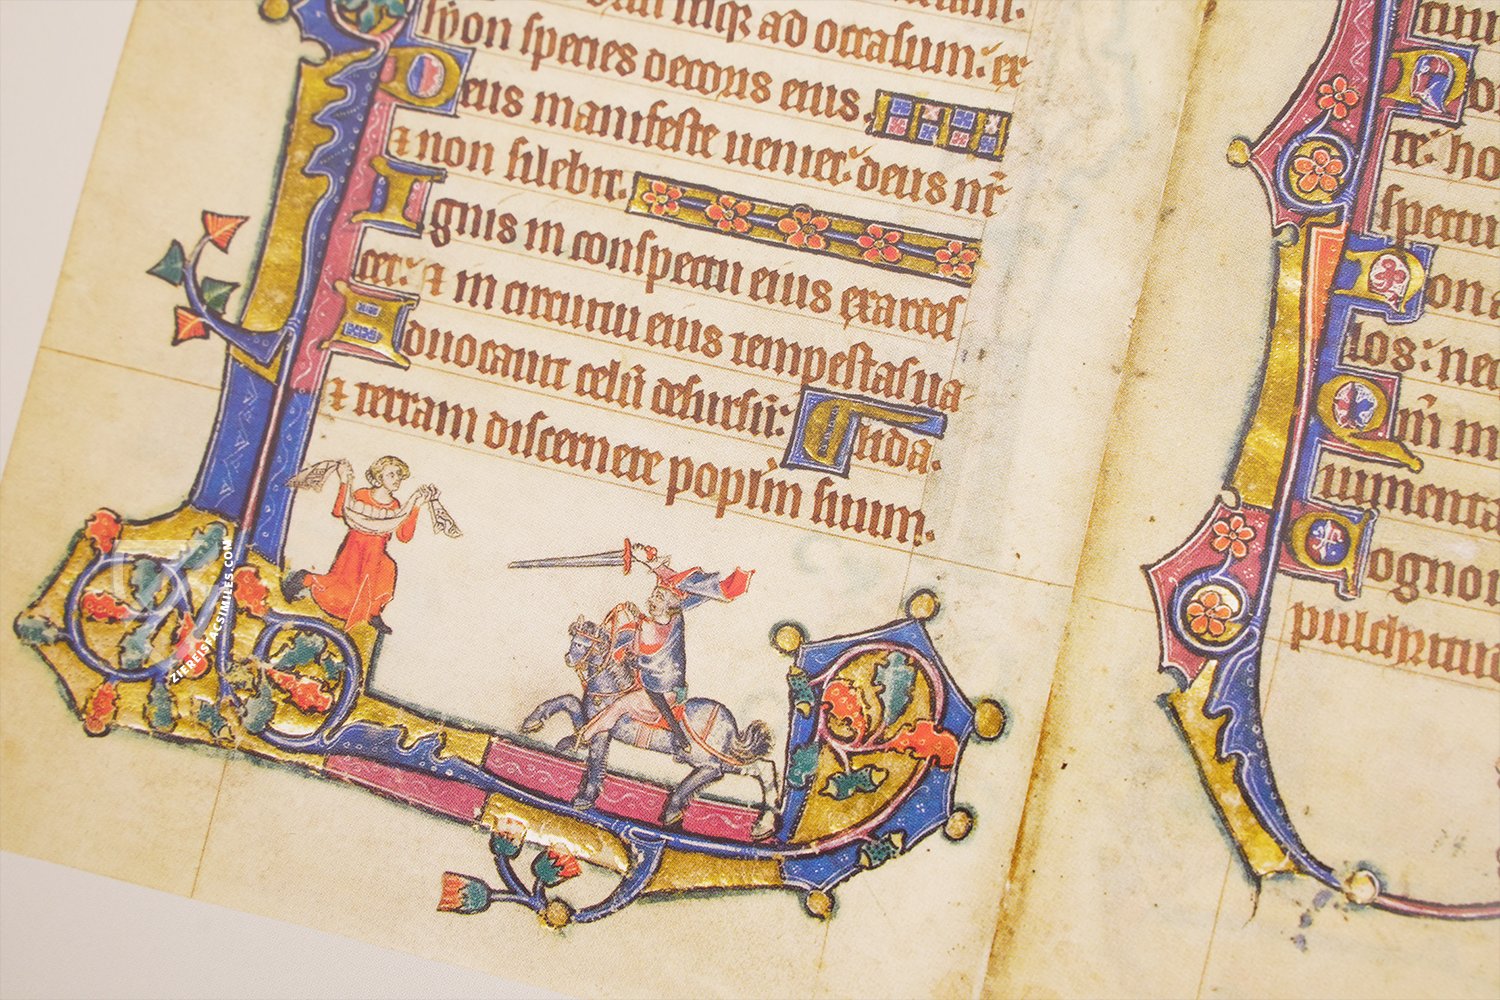 ad occasum: ex
syon species decoris eius.
Deus manifeste ueniet: deus nr̄
⁊ non silebit.
Ignis in conspectu eius exardes
cet: ⁊ in circuitu eius tempestas ua
Aduocauit celū desursū: lida.
⁊ terram discernere poplm̄ suum.
re: ho
spectu
los: nec
m̄ m
iumenta
Cognou
pulchritu
ZIEREISFACSIMILES.COM